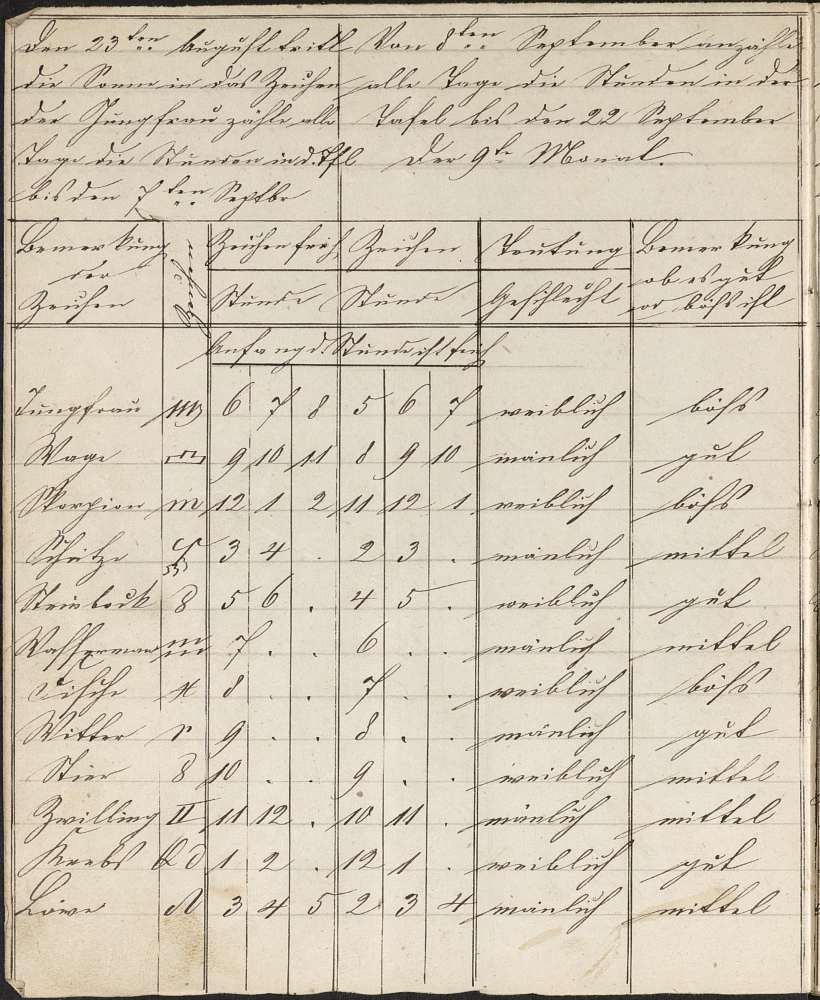 Den 23ten August tritt
die Sonne in das Zeichen
der Jungfrau zähle alle
Tage die Stunden in d. Tfl
bis den 7ten Septbr
Von 8ten September an zähle
alle Tage die Stunden in der
Tafel bis den 22 September
Der 9te Monat.
Bemerkung der Zeichen | Zeichen | Zeichen früh Stunde | Zeichen Stunde | Teutung Geschlecht | Bemerkung ob es gut od böhs ist
Anfang d. Stunde ist früh
Jungfrau ♍ 6 7 8 5 6 7 weiblich böhs
Wage ♎ 9 10 11 8 9 10 mänlich gut
Skorpion ♏ 12 1 2 11 12 1 weiblich böhs
Schütze ♐ 3 4 . 2 3 . mänlich mittel
Steinbock ♑ 5 6 . 4 5 . weiblich gut
Wassermann ♒ 7 . . 6 . . mänlich mittel
Fische ♓ 8 . . 7 . . weiblich böhs
Witter ♈ 9 . . 8 . . mänlich gut
Stier ♉ 10 . . 9 . . weiblich mittel
Zwilling II 11 12 . 10 11 . mänlich mittel
Krebs ♋ 1 2 . 12 1 . weiblich gut
Löwe ♌ 3 4 5 2 3 4 mänlich mittel